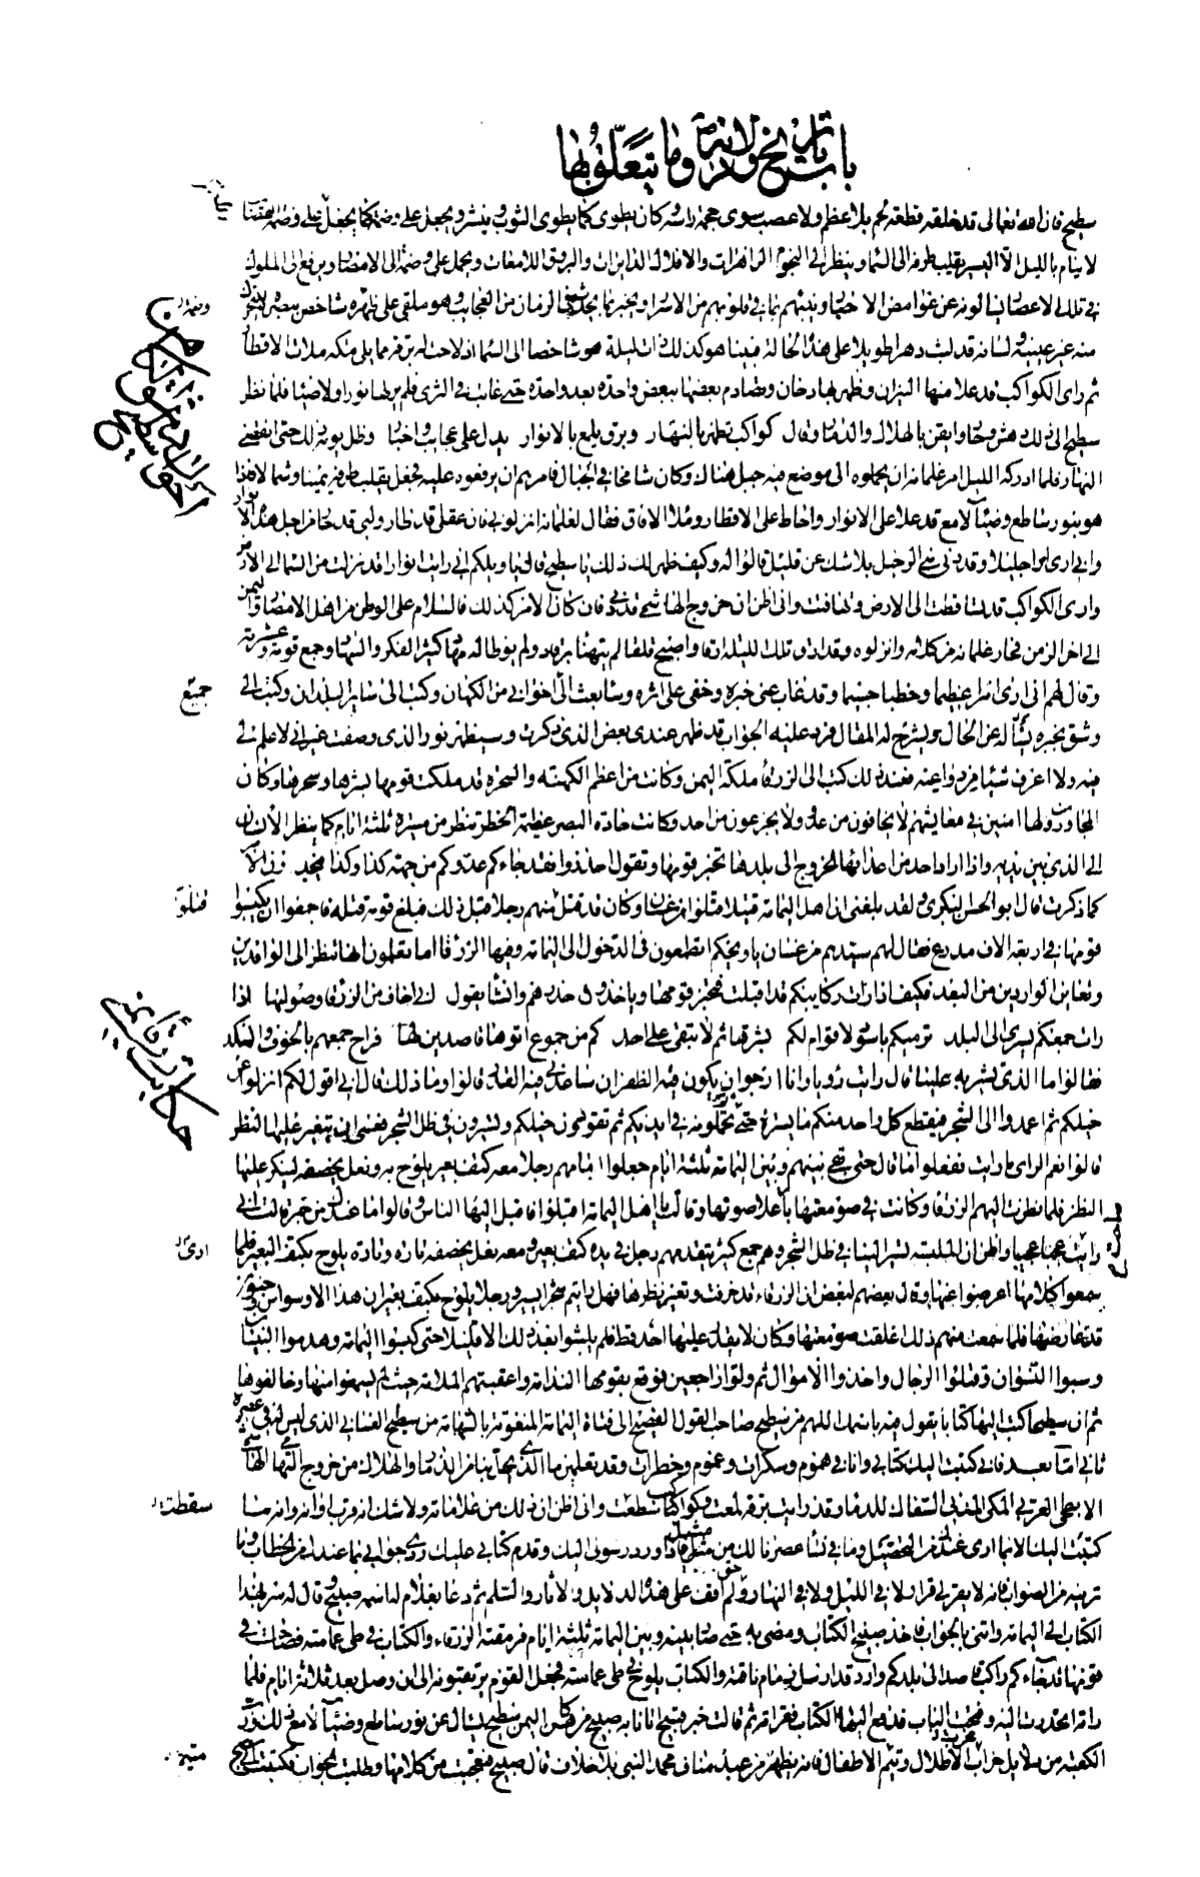 باب تاريخ ولادته ص وما يتعلق بها
سطيح فان الله تعالى قد خلقه قطعة لحم بلا عظم ولا عصب سوى جمجمة راسه وكان يطوى كما يطوى الثوب وينشر ويجعل على وضمة كما يجعل على وضمة
لا ينام بالليل الا اليسير يقلب طرفه الى السماء وينظر الى النجوم الزاهرات والافلاك الدايرات والبروق اللامعات ويحمل على وضمة الى الامصار ويرفع الى الملوك
في تلك الاعصار يسالونه عن غوامض الاخبار وينبئهم بما في قلوبهم من الاسرار ويخبر بما يحدث في الزمان من العجايب وهو ملقى على ظهره شاخص ببصره
منه غير عينيه ولسانه قد لبث دهرا طويلا على هذه الحالة فبينا هو كذلك ذات ليلة هو شاخصا الى السماء اذ لاحت له برقة مما يلي مكة ملات الاقطار
ثم راى الكواكب قد علا منها النيران وظهر بها دخان وتصادم بعضها ببعض واحدة بعد واحدة حتى غابت في الثرى فلم ير لها نورا ولا ضياء فلما نظر
سطيح الى ذلك دهش وحار وايقن بالهلاك والدمار وقال كواكب تظهر بالنهار وبرق يلمع بالانوار يدل على عجايب واخبار وظل يومه ذلك حتى انقضى
النهار فلما ادركه الليل امر غلمانه ان يحملوه الى موضع فيه جبل هناك وكان شامخا في الجبال فامرهم ان يرفعوه عليه فجعل يقلب طرفه يمينا وشمالا فاذا
هو بنور ساطع وضياء لامع قد علا على الانوار واحاط على الاقطار وملا الافاق فقال لغلمانه انزلوني فان عقلي قد طار ولبي قد حار من اجل هذه الانوار
واني ارى امرا جليلا وقد دنى مني الرحيل بلا شك عن قليل قالوا له وكيف ظهر لك ذلك يا سطيح قال يا ويلكم اني رايت نوارا قد نزلت من السماء الى الارض
وارى الكواكب قد تساقطت الى الارض وتهافتت واني اظن ان خروج الهاشمي قد دنى فان كان الامر كذلك فالسلام على الوطن من اهل الامصار واليمن
الى اخر الزمن فحار غلمانه من كلامه وانزلوه وقد ارق تلك الليلة ارقا واصبح قلقا لم يتهنا برقاد ولم يوطا له مهاد كثير الفكر والسهاد وجمع قومه وعشيرته
وقال لهم اني ارى امرا عظيما وخطبا جسيما وقد غاب عني خبره وخفي على اثره وسابعث الى اخواني من الكهان وكتب الى ساير البلدان وكتب الى
وشق يخبره يساله عن الحال ويشرح له المقال فرد عليه الجواب قد ظهر عندي بعض الذي ذكرت وسيظهر نور الذي وصفت غير اني لا علم لي
فيه ولا اعرف شيئا من دواعيه فعند ذلك كتب الى الزرقاء ملكة اليمن وكانت من اعظم الكهنة والسحرة قد ملكت قومها بشرها وسحرها وكان
المجاورون لها امنين في معايشهم لا يخافون من عدو ولا يجزعون من احد وكانت حادة البصر عظيمة الخطر تنظر من مسيرة ثلثة ايام كما ينظر الانسان
الى الذي بين يديه واذا اراد احد من اعدائها الخروج الى بلدها تخبر قومها وتقول احذروا فقد جاءكم عدوكم من جهة كذا وكذا فيجدون الامر
كما ذكرت قال ابو الحسن البكري ولقد بلغني ان اهل اليمامة قتلوا من غسان وكان قد قتل منهم رجلا قبل ذلك فبلغ قومه قتله فاجمعوا ان يكبسوا
قومها في اربعة الاف مدرع فقال لهم سيدهم من غسان يا ويحكم اتطمعون في الدخول الى اليمامة وفيها الزرقاء اما تعلمون انها تنظر الى الوافدين
وتعاين الواردين من البعد فكيف اذا رات ركايبكم قد اقبلت فتخبر قومها وياخذون حذرهم وانشا يقول اني اخاف من الزرقاء وصولتها اذا
رات جمعكم يسري الى البلد ترميكم باسود لا قوام لكم بشرها ثم لا تبقي على احد كم من جموع اتوها قاصدين لها فراح جمعهم بالخوف والنكد
فقالوا ما الذي تشير به علينا قال رايت رويا وانا ارجو ان يكون فيه الظفر ان ساعدني فيه القدر قالوا وما ذلك قال اني اقول لكم انزلوا عن
خيلكم ثم اعمدوا الى الشجر فيقطع كل واحد منكم ما يستره حتى تحملونه في ايديكم ثم تقودون خيلكم وتسيرون في ظل الشجر فعسى ان يتغير عليها النظر
قالوا نعم الراى ما رايت ففعلوا ما قال حتى بقي بينهم وبين اليمامة ثلثة ايام جعلوا امامهم رجلا معه كتف بعير يلوح به ونعل يخصفه لينكر عليها
النظر فلما نظرت اليهم الزرقاء وكانت في صومعتها باعلا صوتها وقالت يا اهل اليمامة اقبلوا فاقبل اليها الناس وقالوا ما عندك من خبر قالت اني
رايت عجبا عجيبا واظن ان الملمة تسير الينا في ظل الشجر وهم جمع كثير يتقدمهم رجل في يده كتف بعير ومعه نعل يخصفه تارة وتارة يلوح بكتف البعير فلما
سمعوا كلامها اعرضوا عنها وقال بعضهم لبعض ان الزرقاء قد خرفت وتغير نظرها فهل رايتم شجرا يسير ورجلا يلوح بكتف بعير ان هذا الا وسواس وجنون
قد عارضها فلما سمعت منهم ذلك اغلقت صومعتها وكان لا يقدر عليها احد قط فلم يلبثوا بعد ذلك الا قليلا حتى كبسوا اليمامة وهدموا البنيان
وسبوا النسوان وقتلوا الرجال واخذوا الاموال ثم ولوا راجعين فوقع بقومها الندامة واعقبتهم الملامة حيث لم يسمعوا منها وخالفوها
ثم ان سطيحا كتب اليها كتابا يقول فيه باسمك اللهم من سطيح صاحب القول الفصيح الى فتاة اليمامة المنعوتة بالشهامة من سطيح الغساني الذي ليس له في عصره
ثاني اما بعد فاني كتبت اليك كتابي وانا في هموم وسكرات وغموم وخطرات وقد تعلمين ما الذي يحل بنا من الدمار والهلاك من خروج التهامي الهاشمي
الابطحي العربي المكي المدني السفاك للدماء وقد رايت برقة لمعت وكواكب سطعت واني اظن ان ذلك من علاماته ولا شك انه قرب اوانه وانه ما
كتبت اليك الا بما ارى عندك من التحصيل وما في نساء عصرنا لك من مثيل فاذا ورد رسولي اليك وقدم كتابي عليك ردي جوابي بما عندك من الخطاب وما
ترينه من الصواب فانه لا يقر لي قرار لا في الليل ولا في النهار ولم اقف على هذه الدلايل والاثار والسلام ثم دعا بغلام له اسمه صبيح وقال له سر بهذا
الكتاب الى اليمامة واتني بالجواب فاخذ صبيح الكتاب ومضى به حتى صار بينه وبين اليمامة ثلثة ايام فرمقته الزرقاء والكتاب في طي عمامته فصاحت في
قومها قد جاءكم راكب قاصد الى بلدكم وارد قد ارسل زمام ناقته والكتاب يلوح في طي عمامته فجعل القوم يرتقبونه الى ان وصل بعد ثلاثة ايام فلما
راته انحدرت اليه وفتحت الباب فدفع اليها الكتاب فقراته ثم قالت خبر قبيح اتانا به صبيح من كاهن اليمن سطيح يسال عن نور ساطع وضياء لامع ذلك ورب
الكعبة من دلايل خراب الاطلال وتيتم الاطفال فانه يظهر من عبد مناف محمد النبي بلا خلاف قال صبيح فتعجبت من كلامها وطلبت الجواب فكتبت
وضمة
جميع
قتلوا
ارى
سقطت